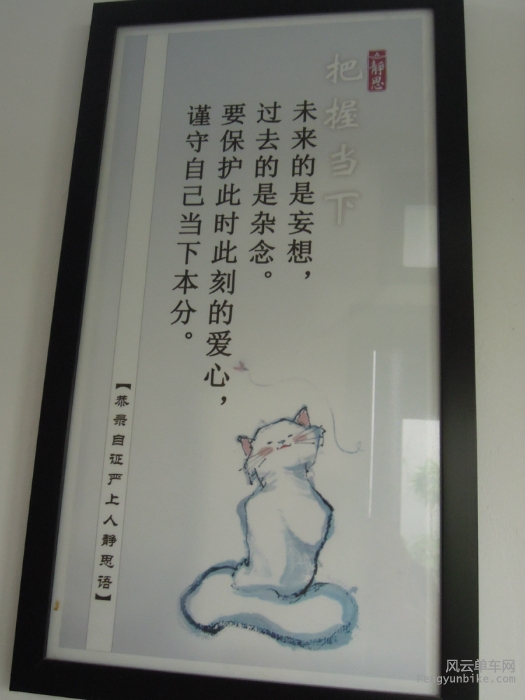 静思
把握当下
未来的是妄想，
过去的是杂念。
要保护此时此刻的爱心，
谨守自己当下本分。
【恭录自证严上人静思语】
风云单车网
fengyunbike.com